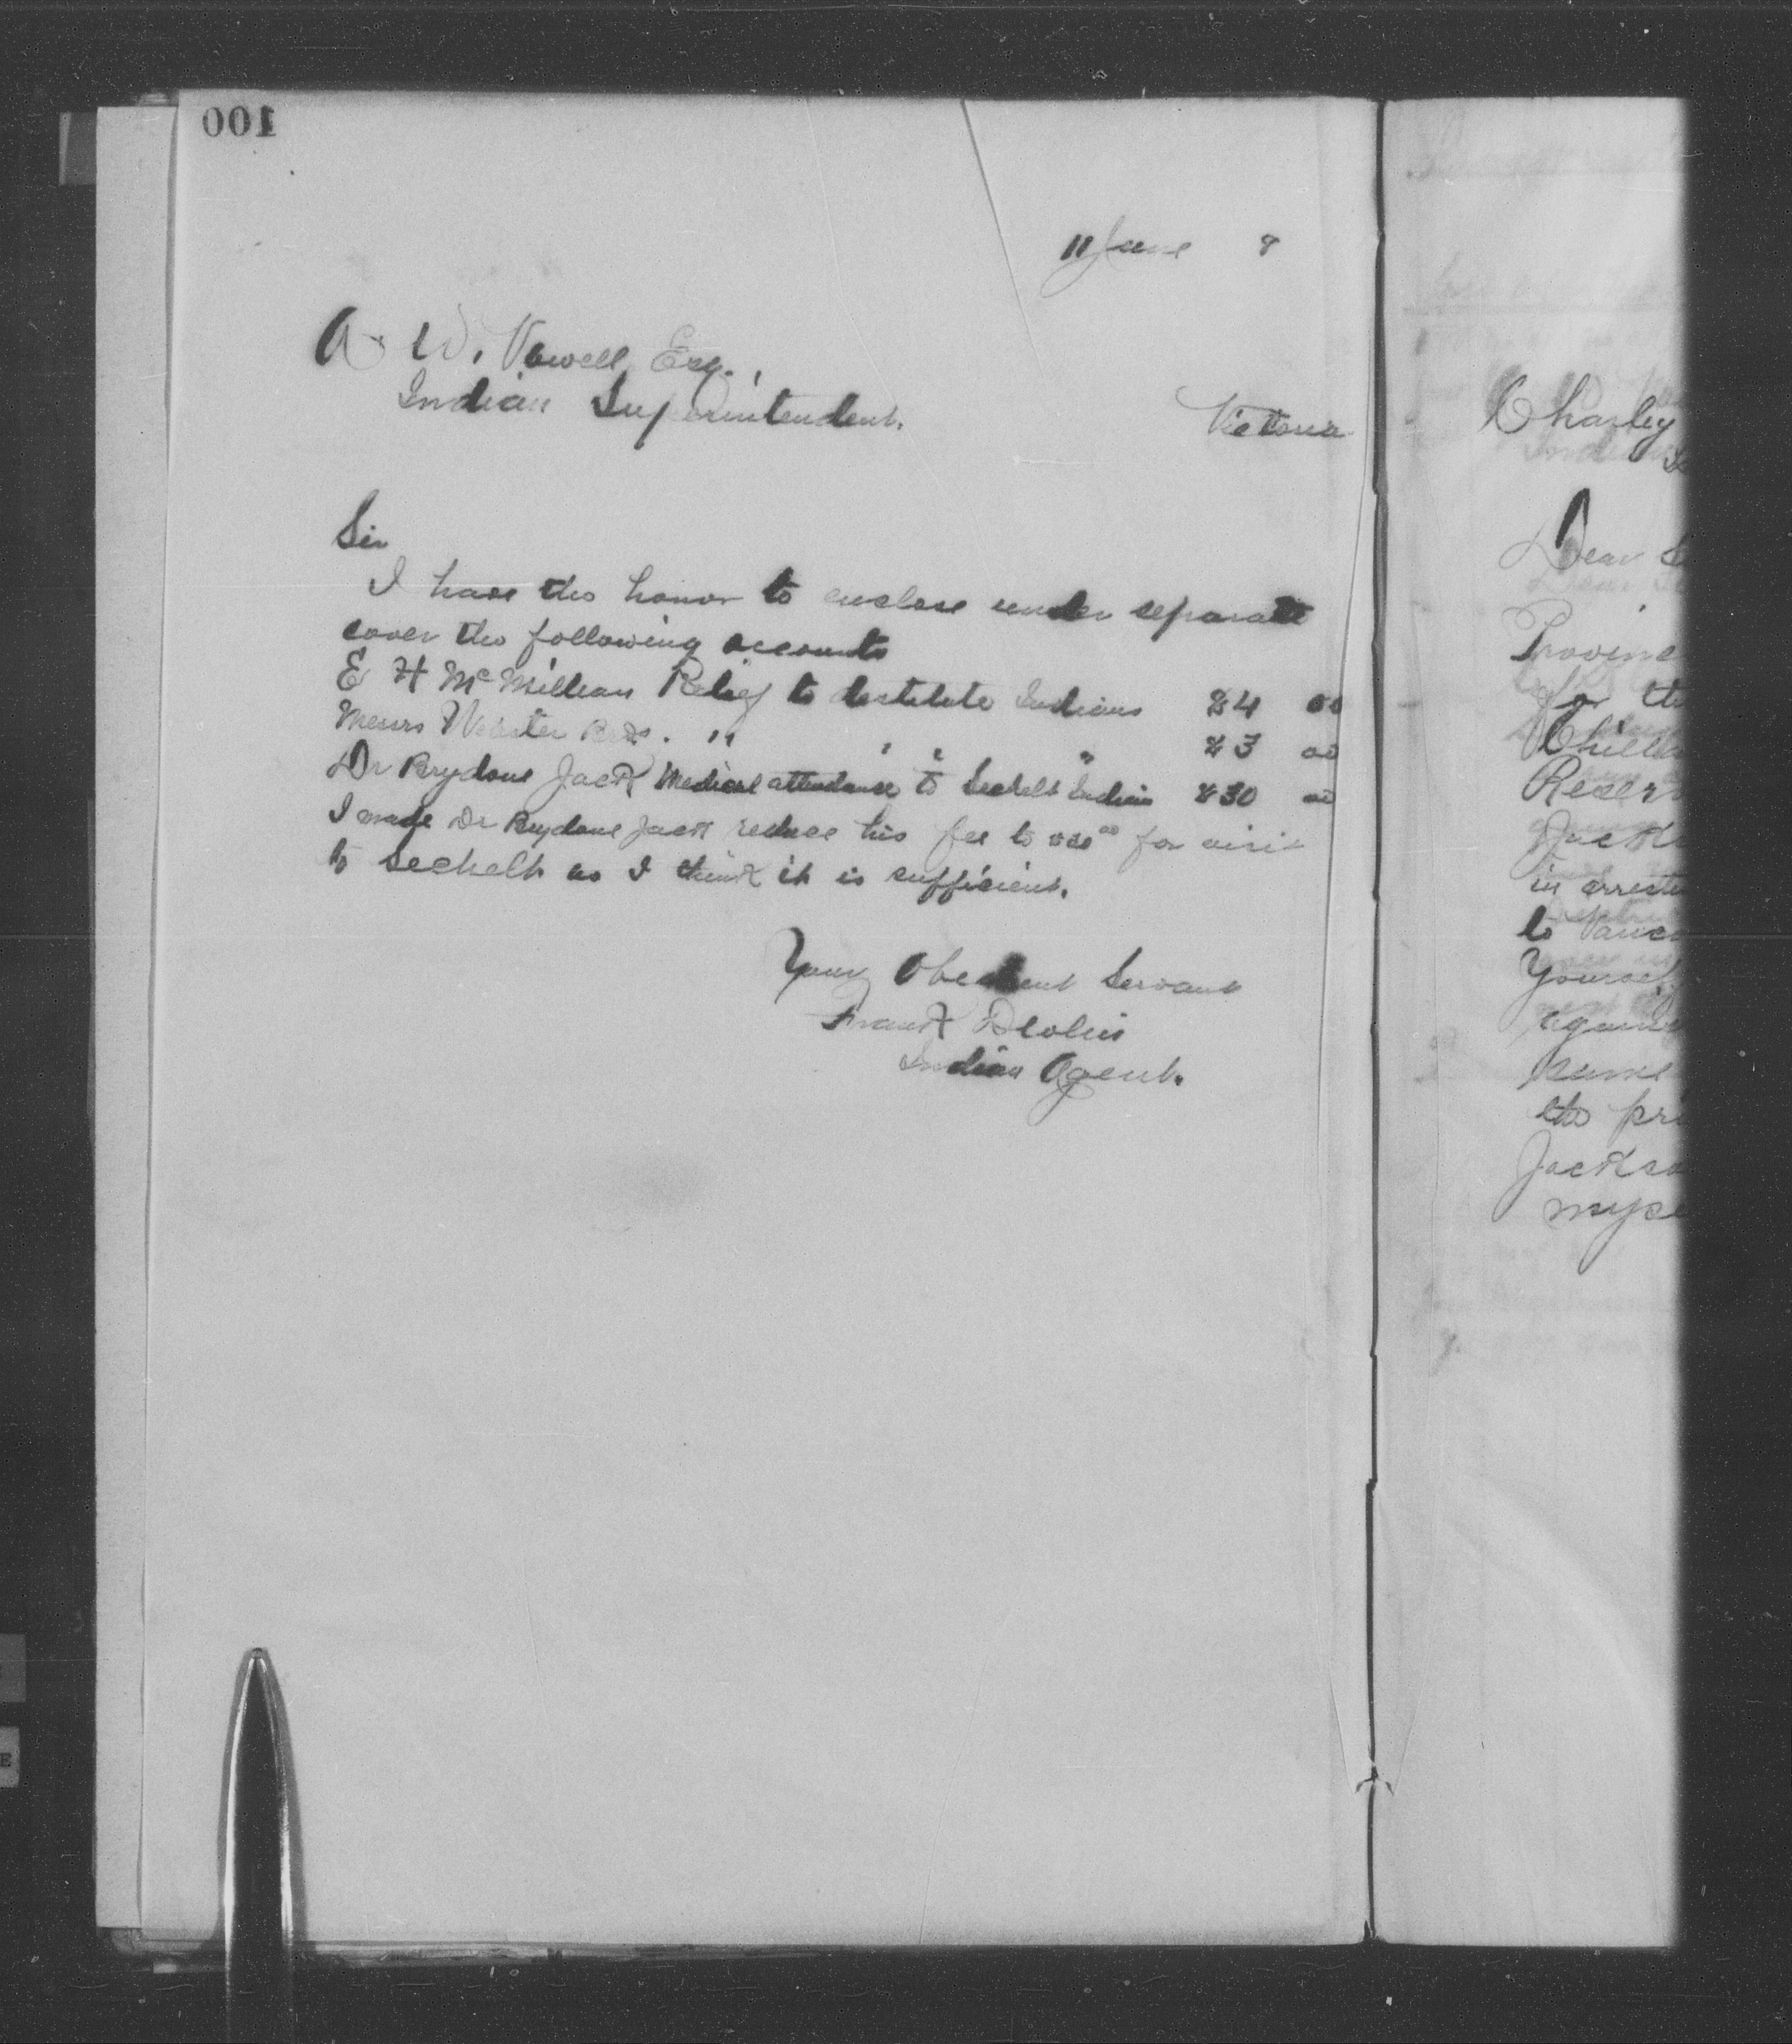 001
11 June 8
A. W. Vowell, Esq.,
Indian Superintendent.
Victoria
Sir
I have the honor to enclose under separate
cover the following accounts
E H McMillan Relief to destitute Indians $4 00
Messrs Webster Bros. " " " " $3 00
Dr Brydone Jack Medical attendance to Sechelt Indians $30 00
I made Dr Brydone Jack reduce his fee to for visit
to Sechelt as I think it is sufficient.
Your Obedient Servant
Frank Devlin
Indian Agent.
Charley
Dear
Provinc
for the
Chilla
Reserv
Jack
in arrest
to Vanco
Yourself
again
same
the pri
Jackso
myse